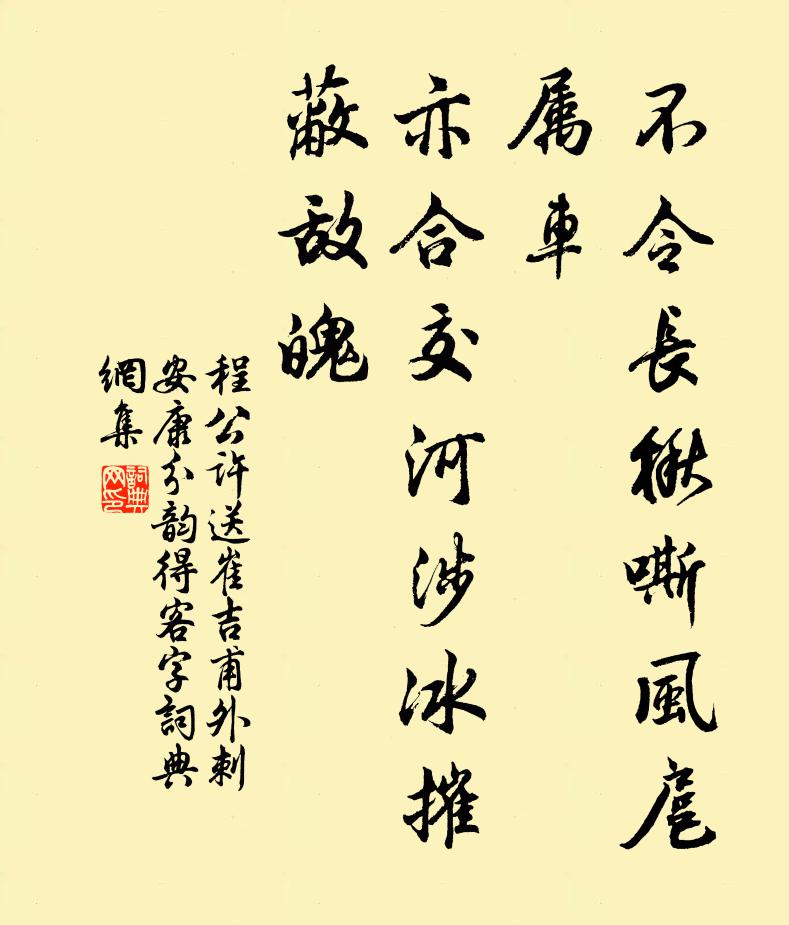 不令長楸嘶風扈
属車
亦合交河涉冰摧
蔽敌魄
程公许送崔吉甫外刺
安康分韵得客字詞典
網集
詞典
网印